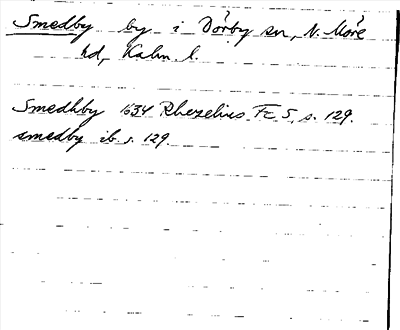 Smedby by i Dörby sn, N. Möre
hd, Kalm. l.
Smedhby 1634 Rhezelius Fc 5, s. 129.
smedby ib s. 129.